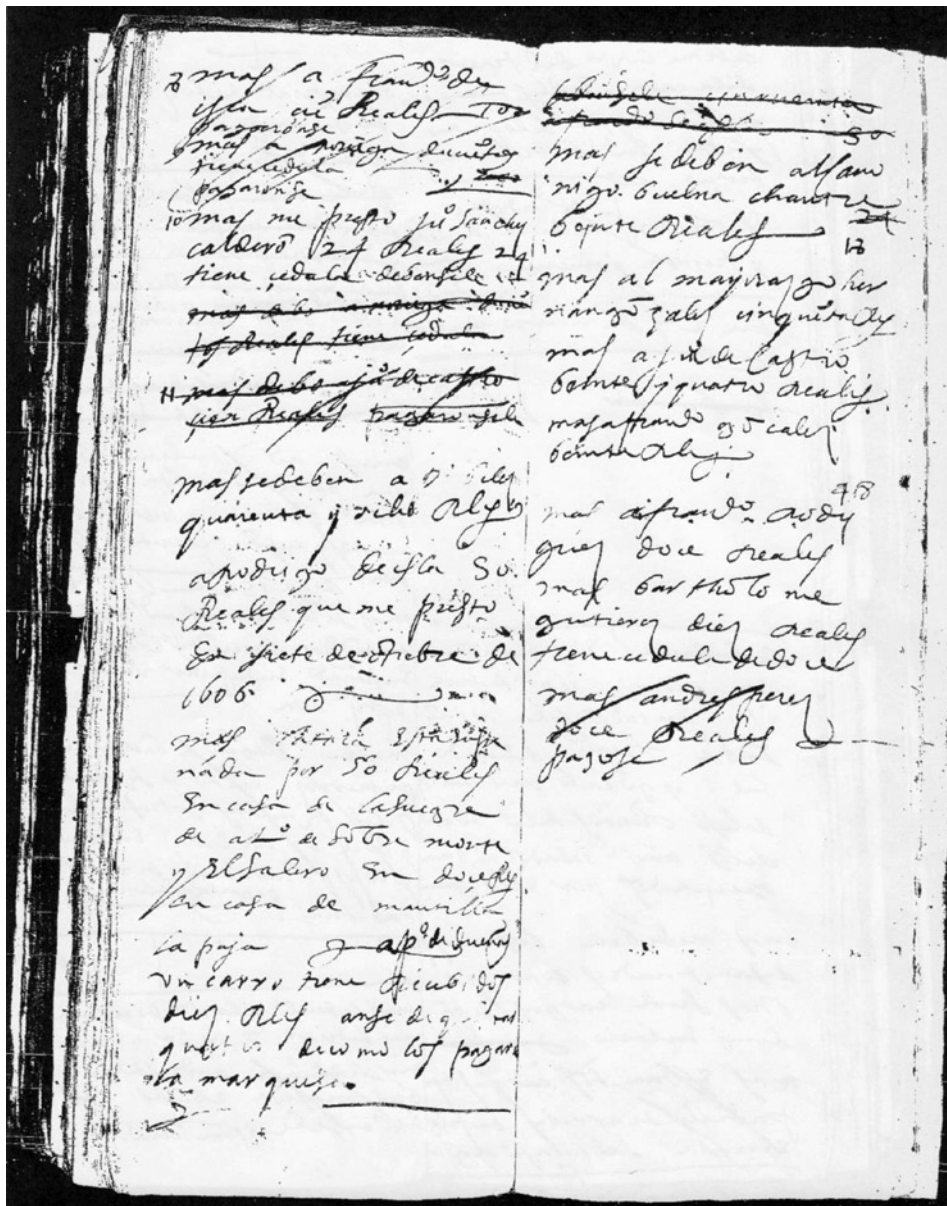 mas a Fran^do de
isla cie Reales 100
pagaronse
mas a noriega
tiene cedula
pagaronse
10 mas me presto ju^o Sanchez
calderõ 24 Reales 24
tiene cedula debansele
mas debo a noriega
Reales tiene cedula
11 mas debo a ju^o de castro
cien Reales pagaronsele
mas se deben a
quarenta y ocho Rles
a Rodrigo de isla 50
Reales que me presto
En siete de otiebre de
1606
mas
nada por 50 Reales
En casa de la suegra
de at^o de sobre monte
y El salero En doce Rles
en casa de mansilla
la paja a p^o de dueñas
vn carro tiene Recibidos
diez Rles anse de
de como los pagare
la marquise
cinquenta
50
mas se deben al cano
nigo buelna chantre
beinte Reales
24
18
mas al mayorazgo her
nan gõçales cinquẽta Rles
mas a ju^o de Castro
beinte y quatro Reales
mas a fran^do gõcalez
beinte Rles
48
mas a fran^do Rodri
guez doce Reales
mas bartholome
gutierez diez Reales
tiene cedula de doce
mas andres perez
doce Reales
pagose